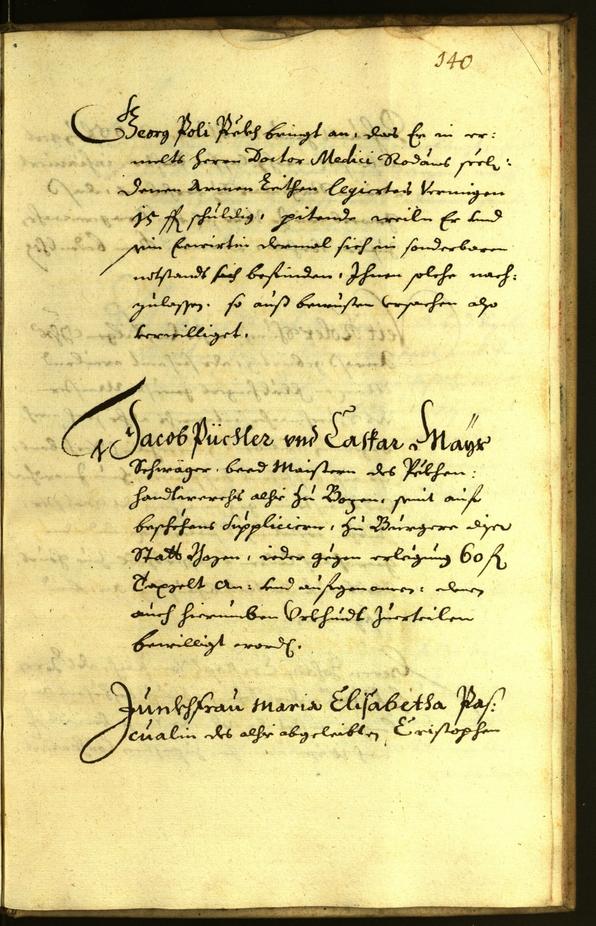 140
Georg Poli Pekh bringt an, das Er in er:
melts Herrn Doctor Medici Rodans seel:
denen Armen Leithen legiertes Vermigen
15 f schuldig, pitende, weiln Er und
sein Ewirtin dermal sich in sonderbaren
notstands sich befinden, Ihnen solche nach:
zulassen. so auß bewusten Ursachen also
verwilliget.
Jacob Püchler und Caspar Mayr
Schwäger, beed Maistern des Pekhen:
handtwerchs alhie zu Bozen, seint auf
beschehens Suppliciern, zu Burgere diser
Statt Bozen, ieder gegen erlegung 60 f
Taxgelt an: und aufgenomen: denen
auch hierumben Urkhundt zuerteilen
bewilligt word.
Junckhfrau Maria Elisabetha Pas:
cualin des alhie abgeleibten Cristophen